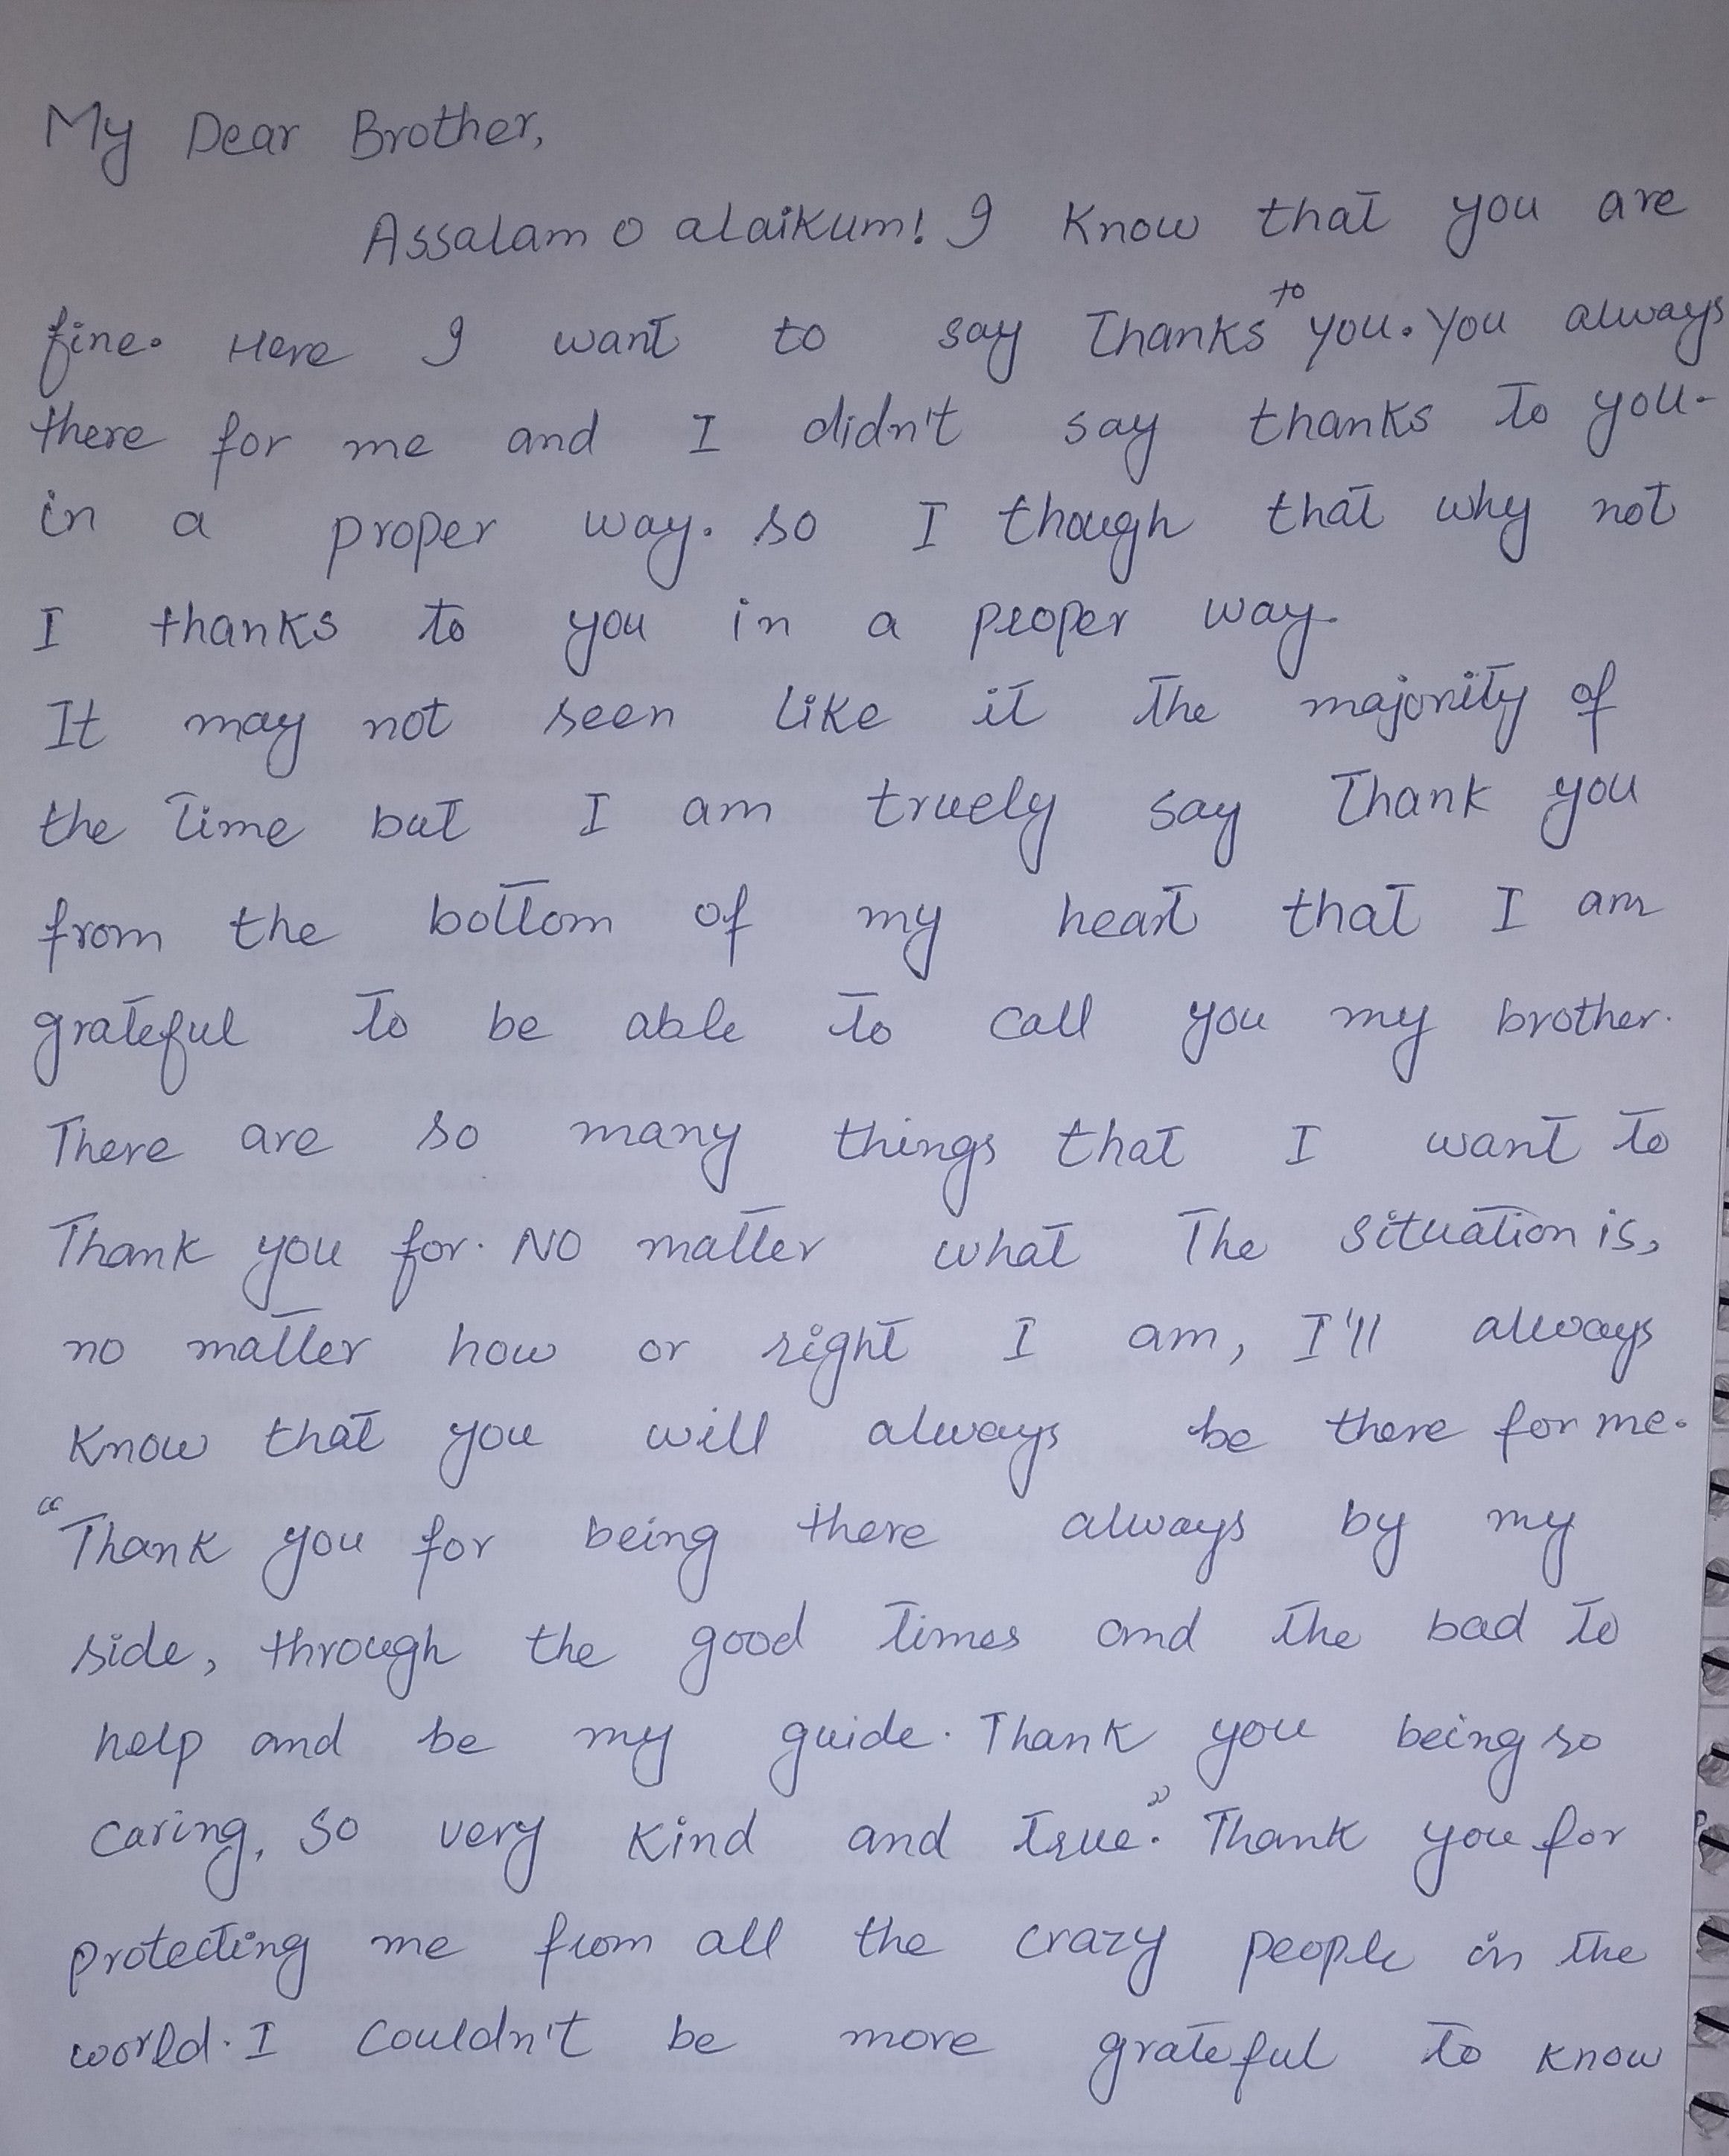 My Dear Brother,
Assalam o alaikum! I know that you are
fine. Here I want to say Thanks to you. You always
there for me and I didn't say thanks to you-
in a proper way. so I though that why not
I thanks to you in a proper way.
It may not seen like it the majority of
the time but I am truely say Thank you
from the bottom of my heart that I am
grateful to be able to call you my brother.
There are so many things that I want to
Thank you for. No matter what The situation is,
no matter how or right I am, I'll always
know that you will always be there for me.
"Thank you for being there always by my
side, through the good times and the bad to
help and be my guide. Thank you being so
caring, so very kind and true." Thank you for
protecting me from all the crazy people in the
world. I couldn't be more grateful to know